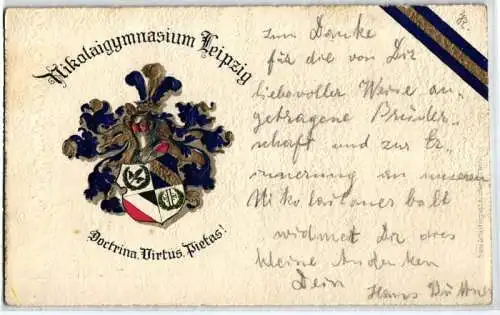 Nikolaigymnasium Leipzig
Doctrina. Virtus. Pietas!
zum Danke
für die von Dir
liebevoller Weise an-
getragene Brüder-
schaft und zur Er-
innerung an unseren
Nikolaitaner ball
widmet Dir dies
kleine Andenken
Dein Hans Büttner